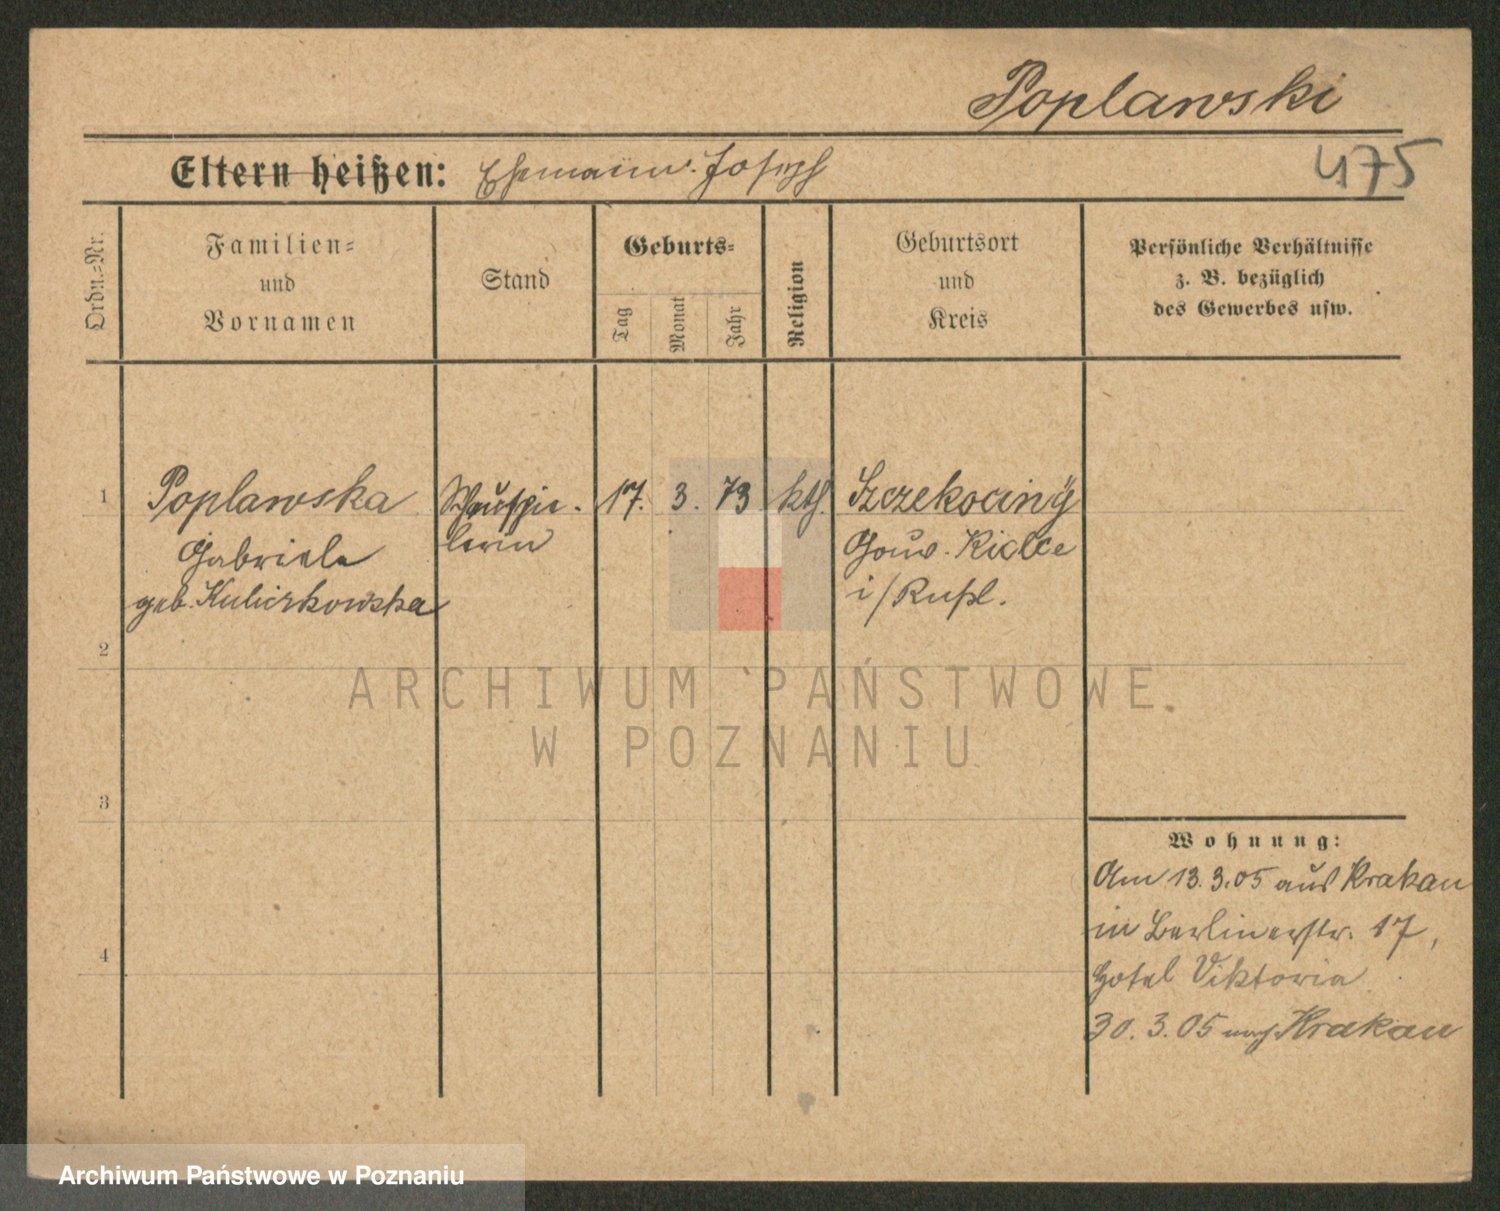 Poplawski
Eltern heißen: Ehemann: Joseph
475
Ordn.=Nr.
Familien=
und
Vornamen
Stand
Geburts=
Tag
Monat
Jahr
Religion
Geburtsort
und
Kreis
Persönliche Verhältnisse
z. B. bezüglich
des Gewerbes usw.
1 Poplawska Schauspie- 17. 3. 73 kth. Szczekociny
Gabriele lerin Gouv. Kielce
geb. i/Rußl.
2
ARCHIWUM PAŃSTWOWE
W POZNANIU
3
Wohnung:
Am 13.3.05 aus Krakau
in Berlinerstr. 17,
4
Hotel Viktoria
30.3.05 nach Krakau
Archiwum Państwowe w Poznaniu